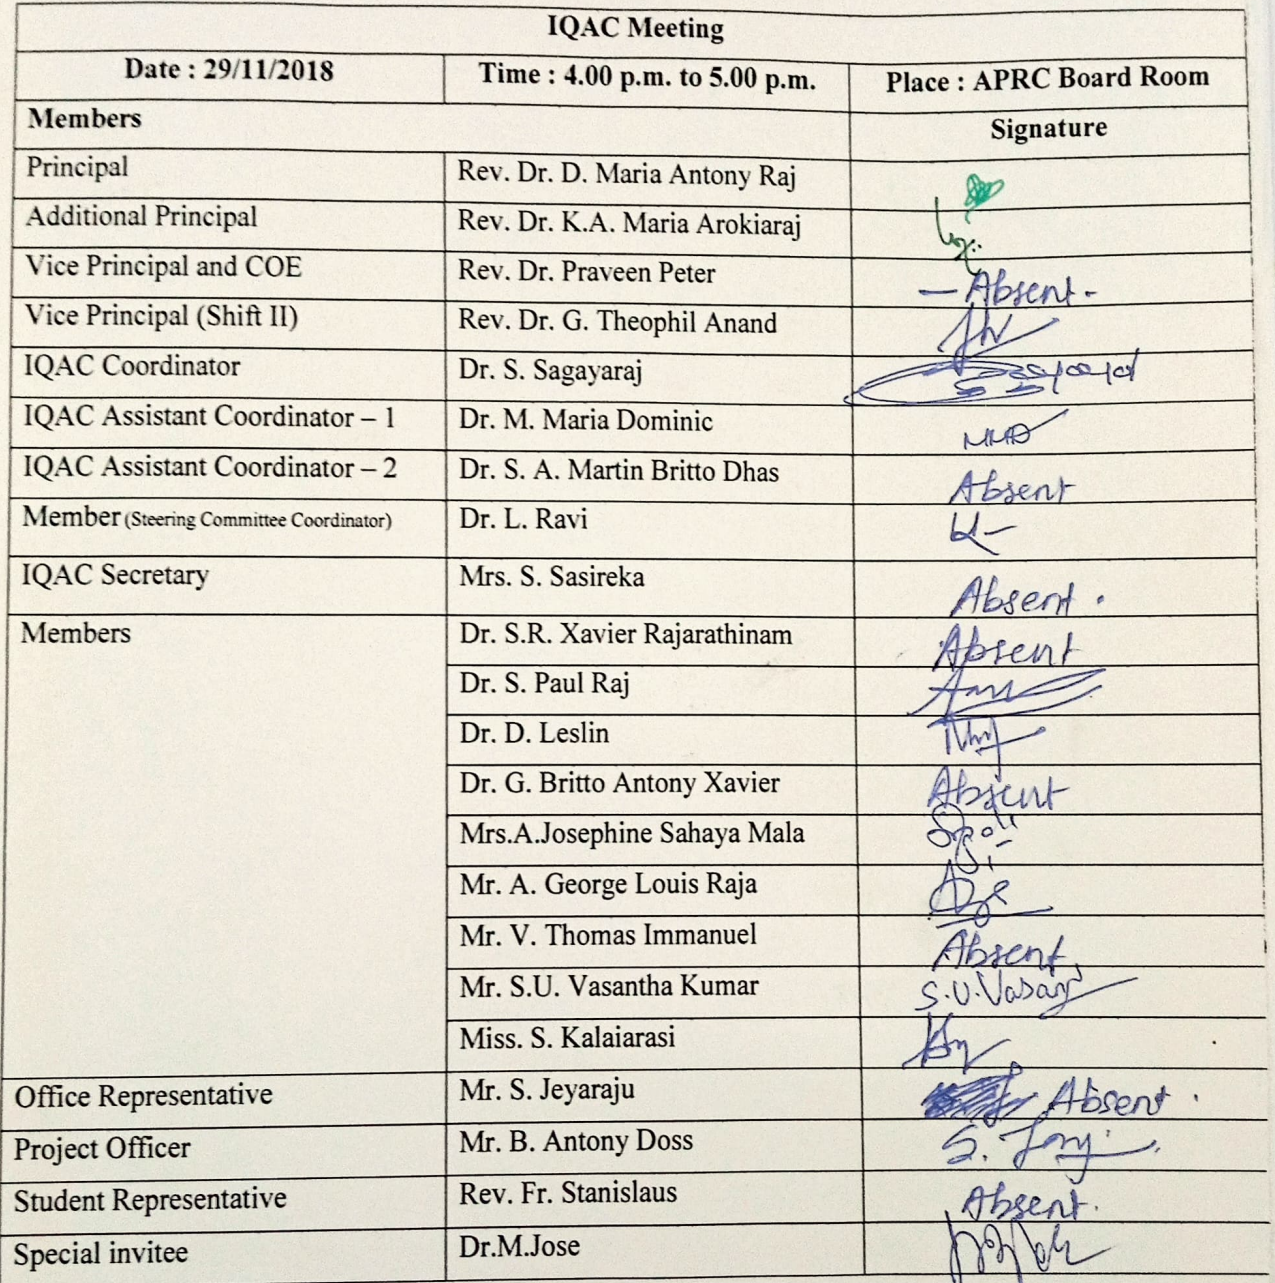 IQAC Meeting
Date : 29/11/2018 Time : 4.00 p.m. to 5.00 p.m. Place : APRC Board Room
Members Signature
Principal Rev. Dr. D. Maria Antony Raj
Additional Principal Rev. Dr. K.A. Maria Arokiaraj
Vice Principal and COE Rev. Dr. Praveen Peter - Absent -
Vice Principal (Shift II) Rev. Dr. G. Theophil Anand
IQAC Coordinator Dr. S. Sagayaraj
IQAC Assistant Coordinator – 1 Dr. M. Maria Dominic
IQAC Assistant Coordinator – 2 Dr. S. A. Martin Britto Dhas Absent
Member (Steering Committee Coordinator) Dr. L. Ravi
IQAC Secretary Mrs. S. Sasireka Absent .
Members Dr. S.R. Xavier Rajarathinam Absent
Dr. S. Paul Raj
Dr. D. Leslin
Dr. G. Britto Antony Xavier Absent
Mrs.A.Josephine Sahaya Mala
Mr. A. George Louis Raja
Mr. V. Thomas Immanuel Absent
Mr. S.U. Vasantha Kumar S.U.Vasan
Miss. S. Kalaiarasi
Office Representative Mr. S. Jeyaraju Absent .
Project Officer Mr. B. Antony Doss
Student Representative Rev. Fr. Stanislaus Absent.
Special invitee Dr.M.Jose